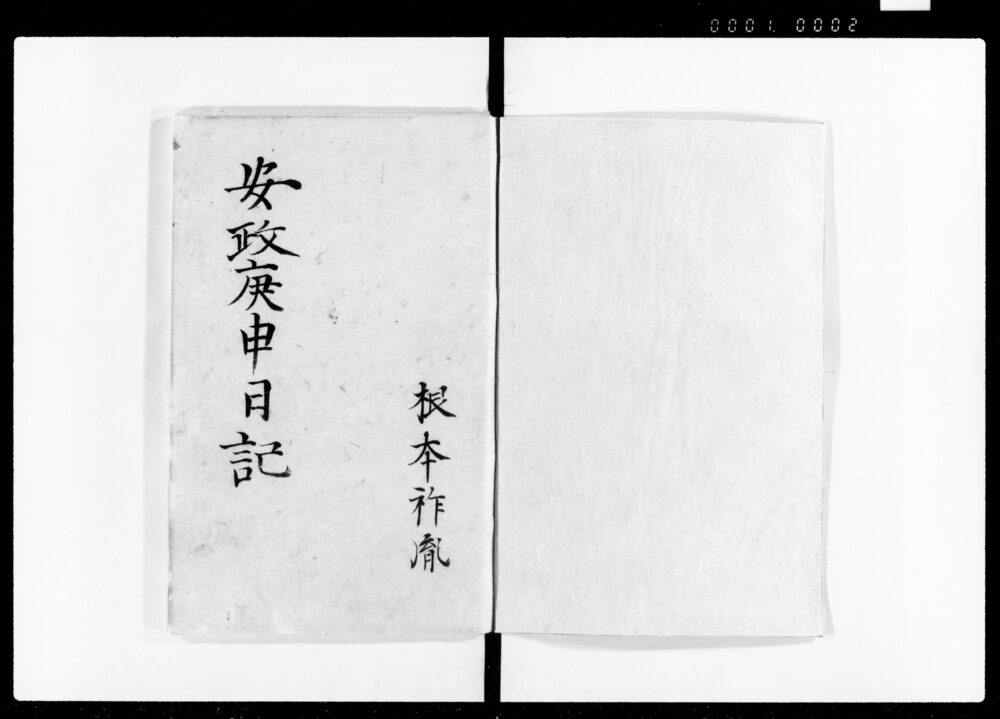 0001. 0002
根本祚胤
安政庚申日記